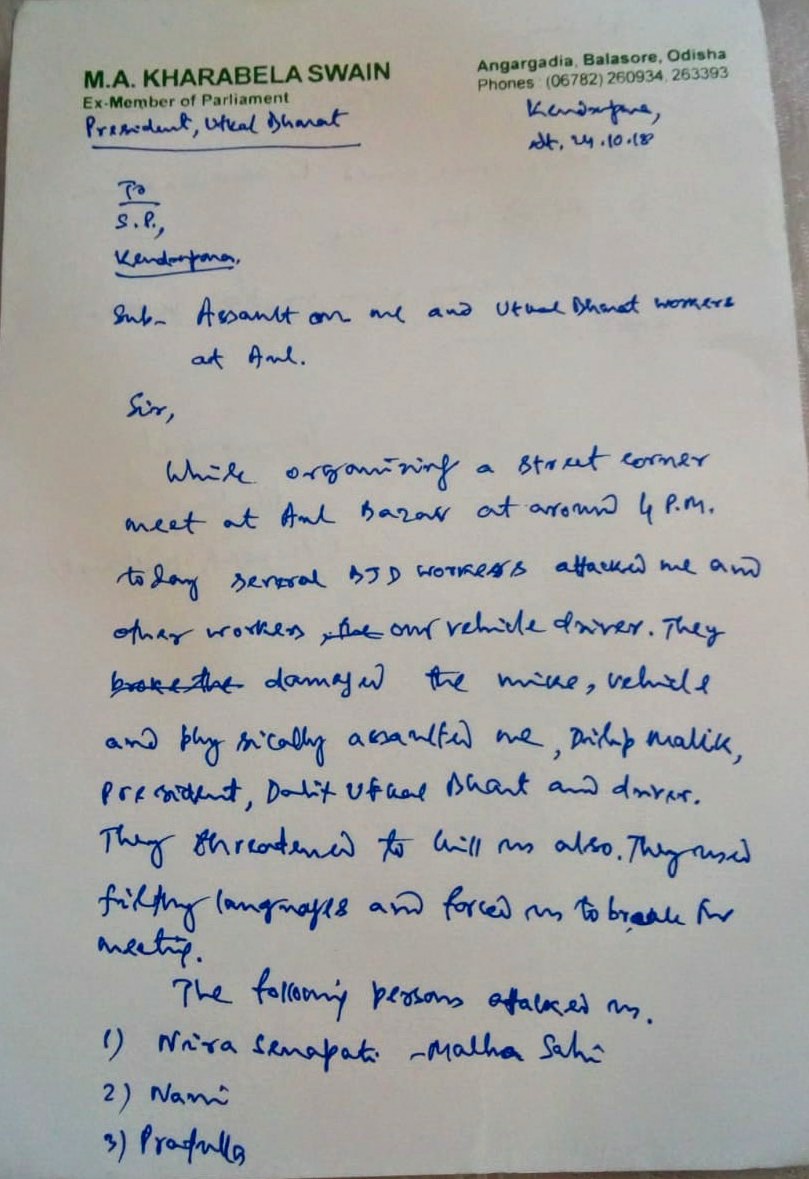 M.A. KHARABELA SWAIN
Ex-Member of Parliament
President, Utkal Bharat
Angargadia, Balasore, Odisha
Phones : (06782) 260934, 263393
Kendrapara,
dt. 24.10.18
To
S.P.,
Kendrapara.
Sub- Assault on me and Utkal Bharat workers
at Aul.
Sir,
While organising a street corner
meet at Aul Bazar at around 4 P.M.
today several BJD workers attacked me and
other workers, our vehicle driver. They
broke the damaged the mike, vehicle
and physically assaulted me, Dilip Malik,
President, Dalit Utkal Bharat and driver.
They threatened to kill us also. They used
filthy languages and forced us to break
meeting.
The following persons attacked us.
1) Nira Senapati - Malha Sahi
2) Nami
3) Prafulla